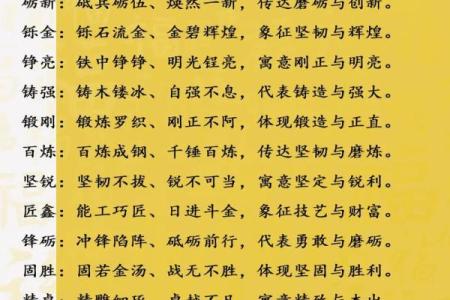 砺新：砥兵砺伍、焕然一新，传达磨砺与创新。
铄金：铄石流金、金碧辉煌，象征坚韧与辉煌。
铮亮：铁中铮铮、明光锃亮，寓意刚正与明亮。
铸强：铸木镂冰、自强不息，代表铸造与强大。
锻刚：锻炼罗织、刚正不阿，体现锻造与正直。
百炼：百炼成钢、千锤百炼，传达坚韧与磨炼。
坚锐：坚韧不拔、锐不可当，寓意坚定与锐利。
匠鑫：能工巧匠、日进斗金，象征技艺与财富。
锋砺：冲锋陷阵、砥砺前行，代表勇敢与磨砺。
固胜：固若金汤、战无不胜，体现坚固与胜利。
精卓：精雕细琢、卓越不凡，寓意精致与杰出。